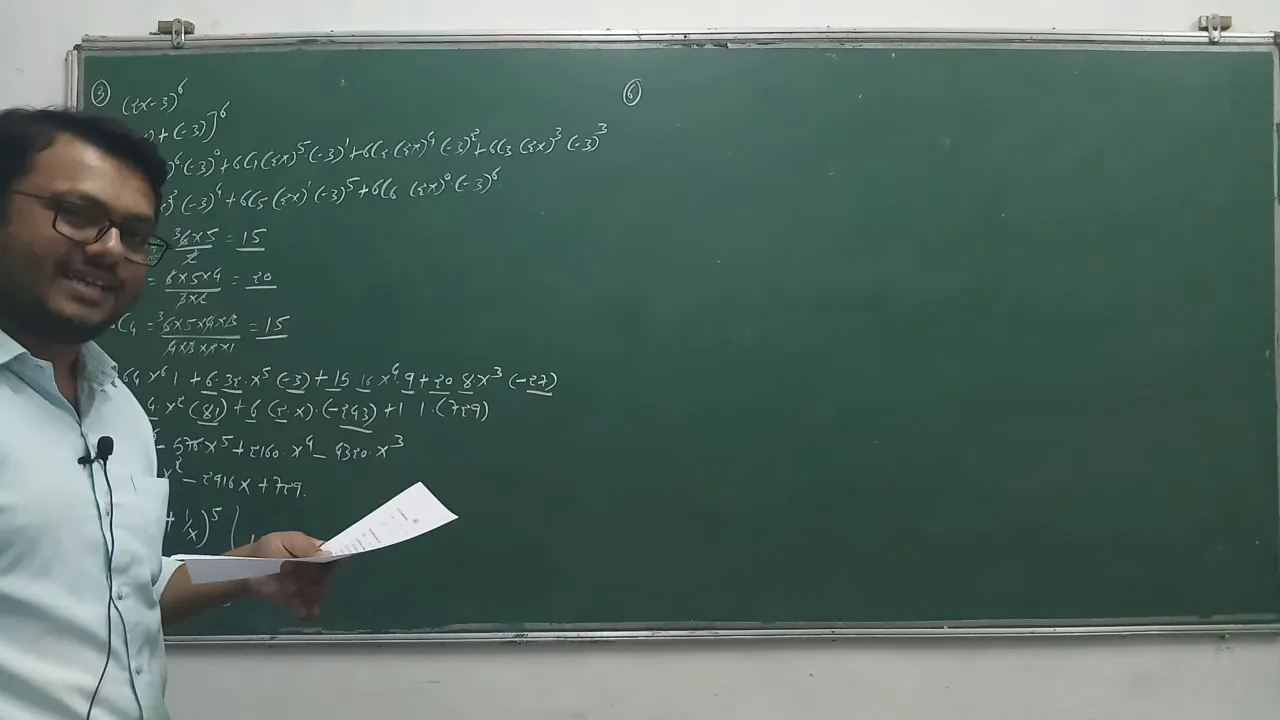 ③ (2x-3)⁶
+(-3)]⁶
⁶·(-3)⁰+6C₁(2x)⁵·(-3)¹+6C₂(2x)⁴(-3)²+6C₃(2x)³(-3)³
(-3)⁴+6C₅(2x)¹(-3)⁵+6C₆(2x)⁰·(-3)⁶
6×5/2 = 15
= 6×5×4/3×2 = 20
C₄ = 6×5×4×3/4×3×2×1 = 15
64x⁶1+6·32·x⁵(-3)+15 16x⁴·9+20 8·x³(-27)
4·x²(81)+6(2·x)·(-243)+1 1·(729)
- 576·x⁵+2160·x⁴-4320·x³
x²-2916x+729.
+ 1/x)⁵
⑥